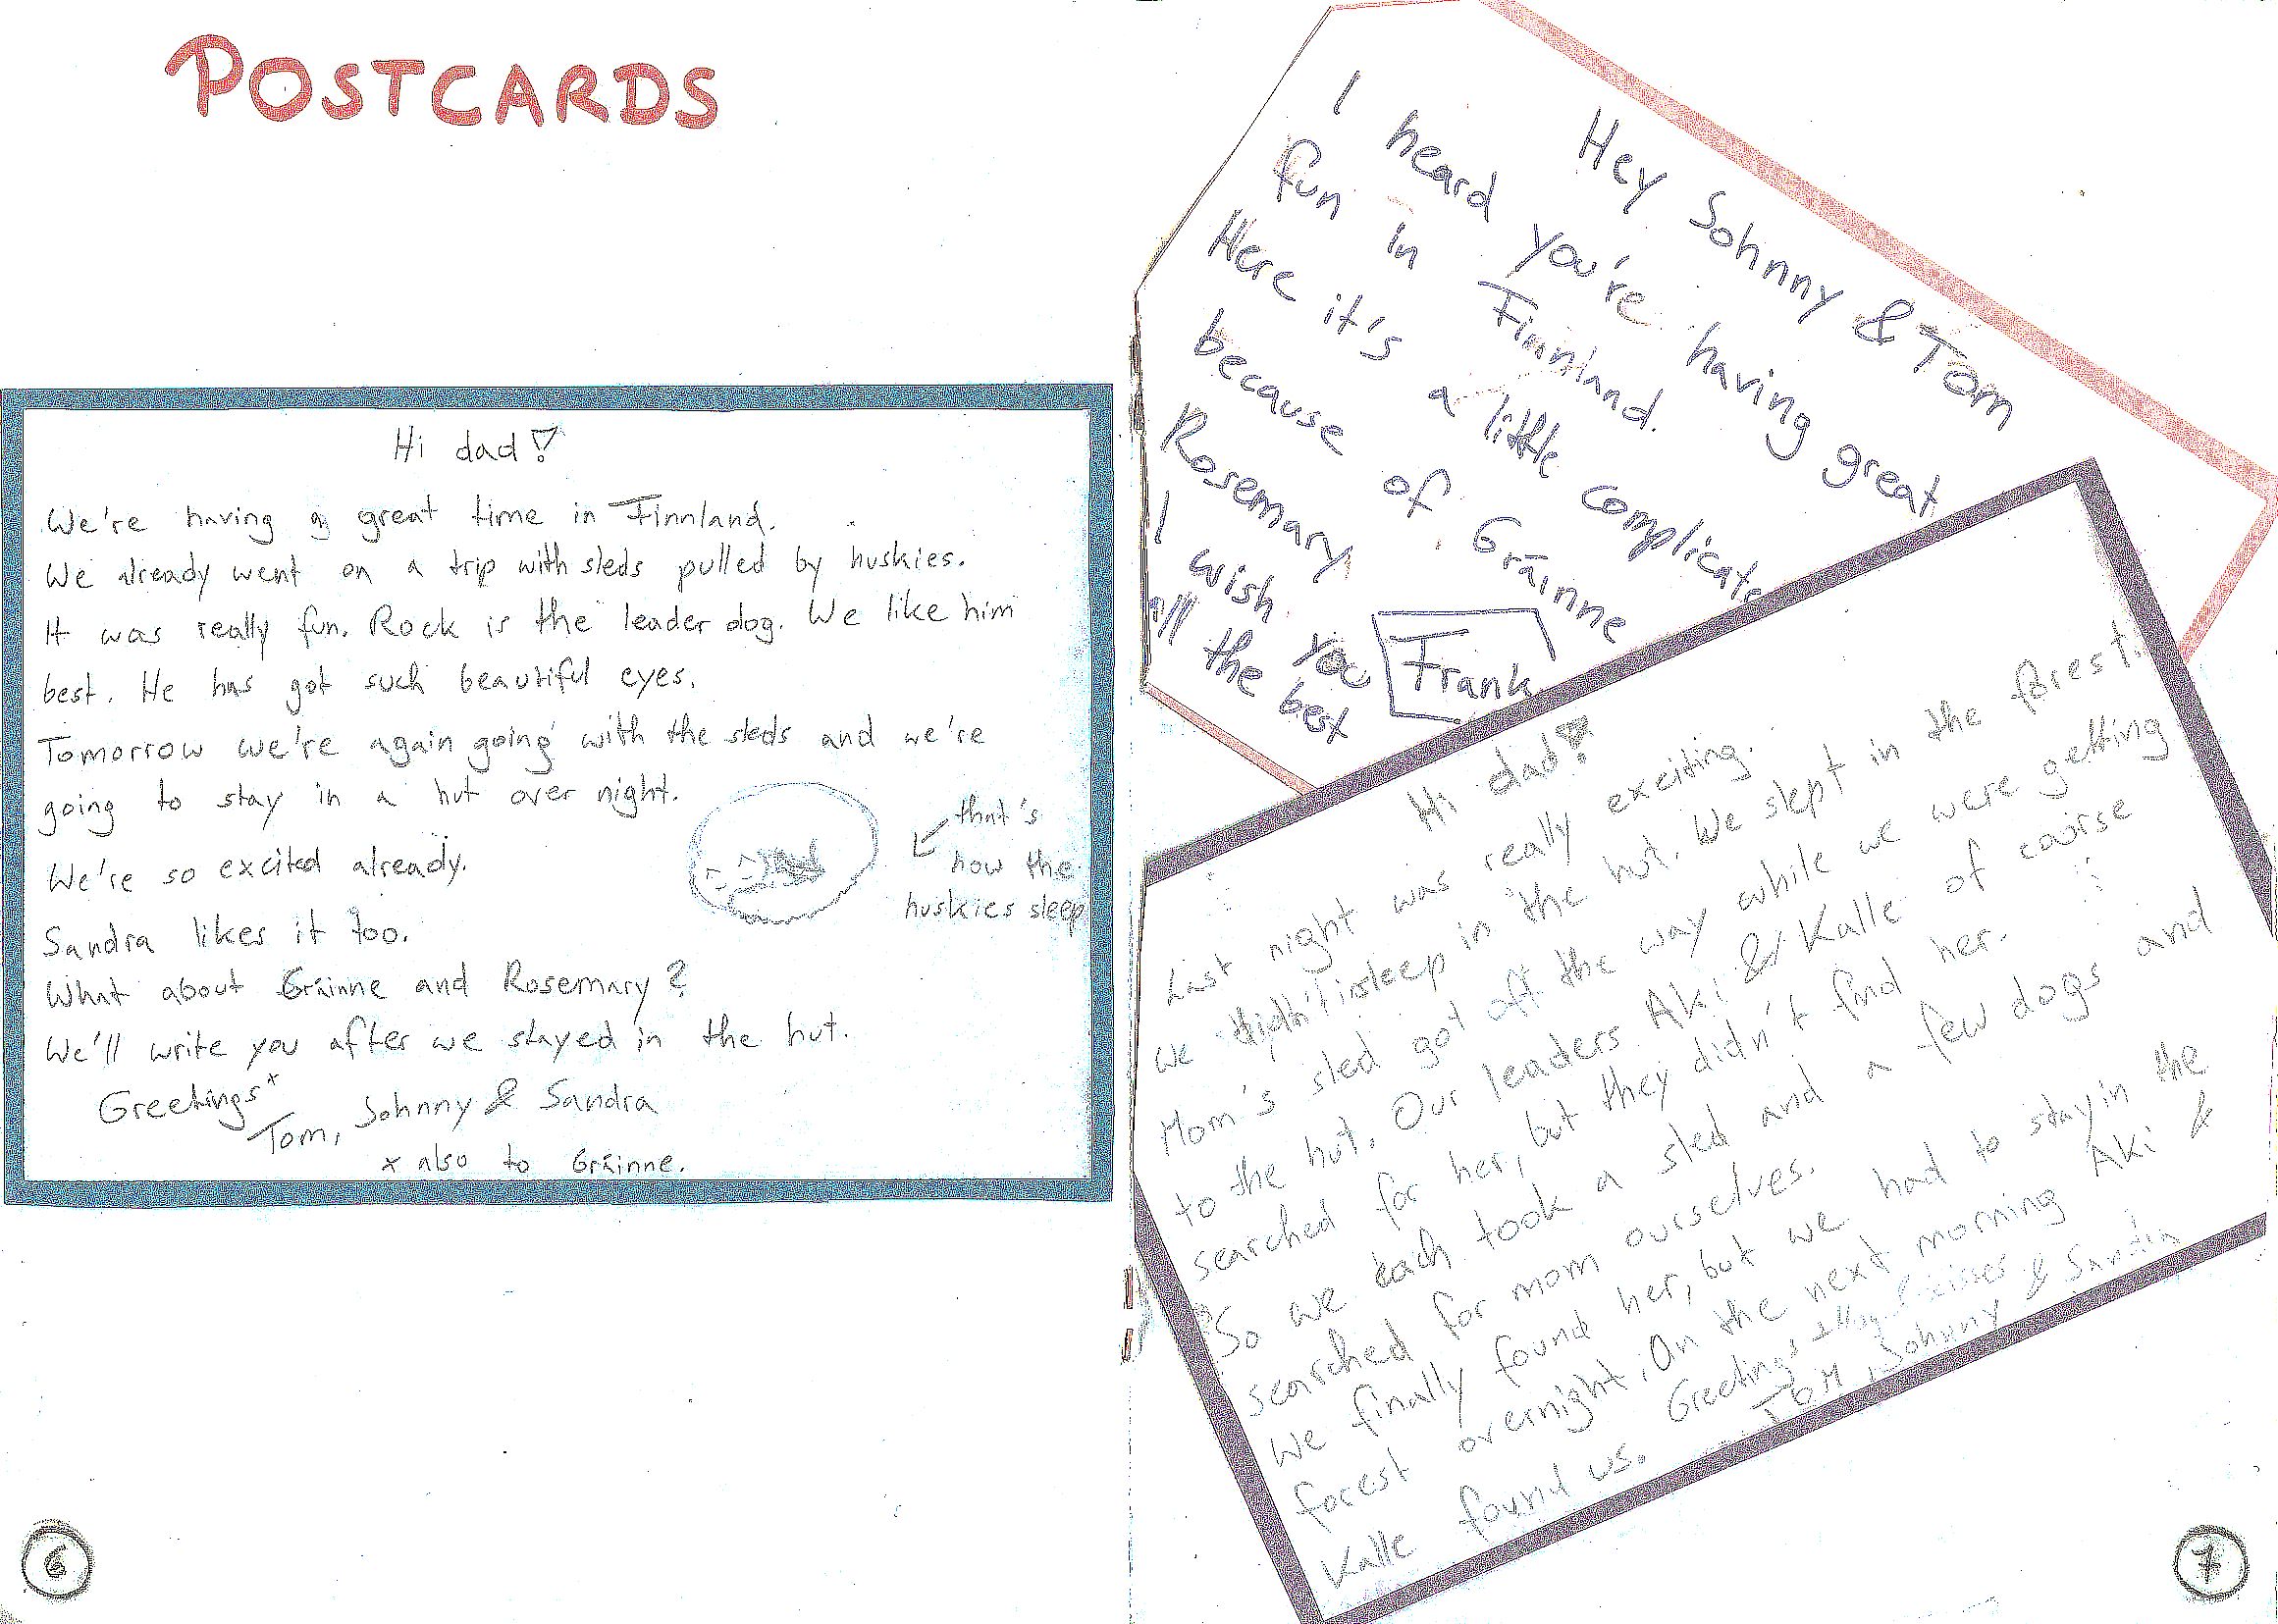 POSTCARDS
Hi dad!
We're having a great time in Finnland.
We already went on a trip with sleds pulled by huskies.
It was really fun. Rock is the leader dog. We like him
best. He has got such beautiful eyes.
Tomorrow we're again going with the sleds and we're
going to stay in a hut over night.
We're so excited already.
Sandra likes it too.
What about Gráinne and Rosemary?
We'll write you after we stayed in the hut.
Greetings*
Tom, Johnny & Sandra
* also to Gráinne.
that's
how the
huskies sleep
6
Hey Johnny & Tom
I heard you're having great
fun in Finnland.
Here it's a little complicate
because of Gráinne
Rosemary
I wish you
all the best
Frank
Hi dad!
Last night was really exciting.
We didn't sleep in the hut. We slept in the forest.
Mom's sled got off the way while we were getting
to the hut. Our leaders Aki & Kalle of course
searched for her, but they didn't find her.
So we each took a sled and a few dogs and
searched for mom ourselves.
We finally found her, but we had to stay in the
forest overnight. On the next morning Aki &
Kalle found us. Greetings &
Tom, Johnny & Sandra
7